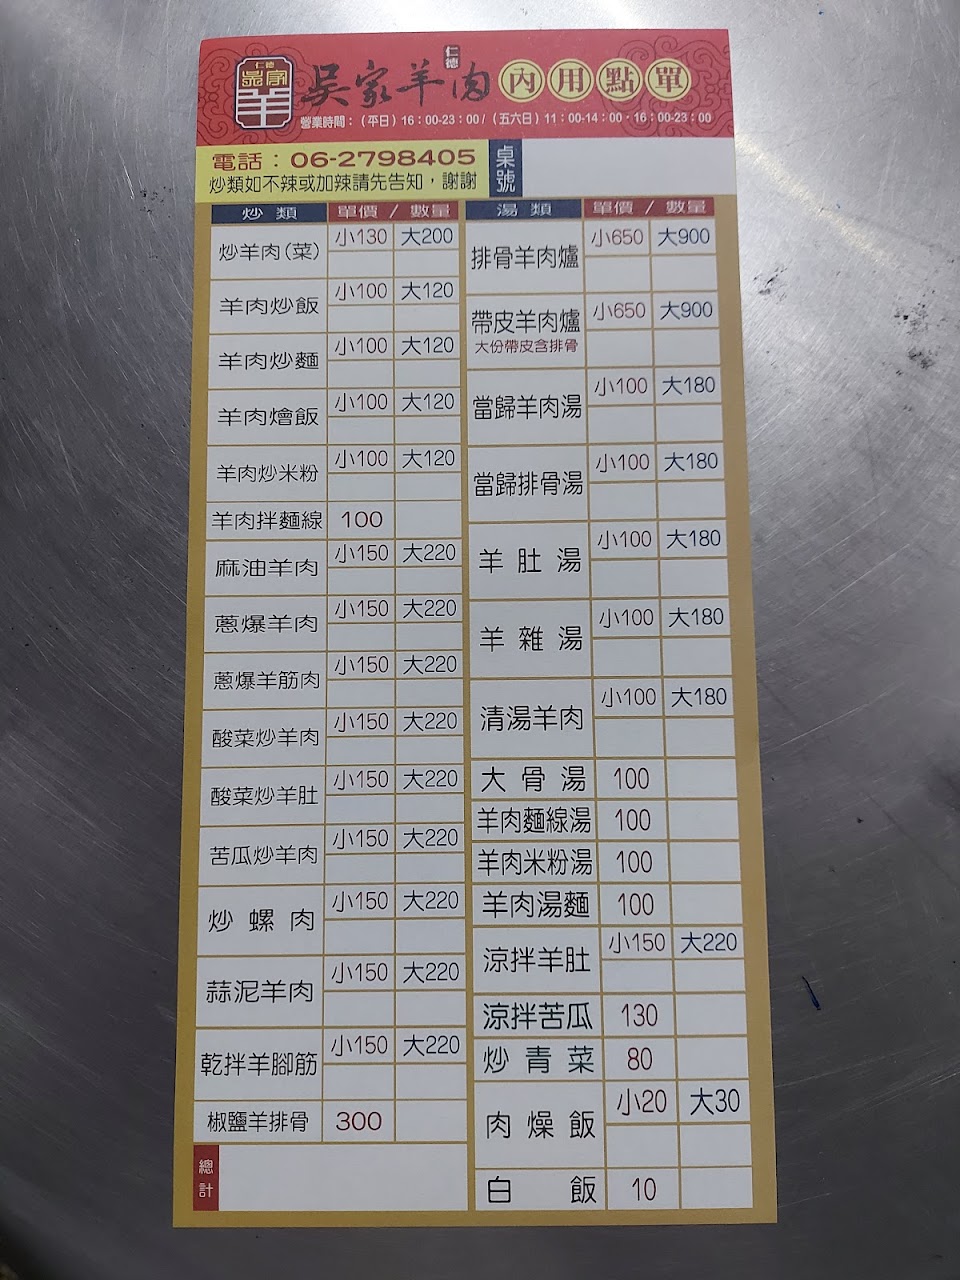 仁德
吳家
羊
吳家羊肉
仁德
內用點單
營業時間：（平日）16：00-23：00/（五六日）11：00-14：00、16：00-23：00
電話：06-2798405
炒類如不辣或加辣請先告知，謝謝
桌號
炒類 單價 / 數量
炒羊肉(菜) 小130 大200
羊肉炒飯 小100 大120
羊肉炒麵 小100 大120
羊肉燴飯 小100 大120
羊肉炒米粉 小100 大120
羊肉拌麵線 100
麻油羊肉 小150 大220
蔥爆羊肉 小150 大220
蔥爆羊筋肉 小150 大220
酸菜炒羊肉 小150 大220
酸菜炒羊肚 小150 大220
苦瓜炒羊肉 小150 大220
炒螺肉 小150 大220
蒜泥羊肉 小150 大220
乾拌羊腳筋 小150 大220
椒鹽羊排骨 300
總計
湯類 單價 / 數量
排骨羊肉爐 小650 大900
帶皮羊肉爐 小650 大900
大份帶皮含排骨
當歸羊肉湯 小100 大180
當歸排骨湯 小100 大180
羊肚湯 小100 大180
羊雜湯 小100 大180
清湯羊肉 小100 大180
大骨湯 100
羊肉麵線湯 100
羊肉米粉湯 100
羊肉湯麵 100
涼拌羊肚 小150 大220
涼拌苦瓜 130
炒青菜 80
肉燥飯 小20 大30
白飯 10